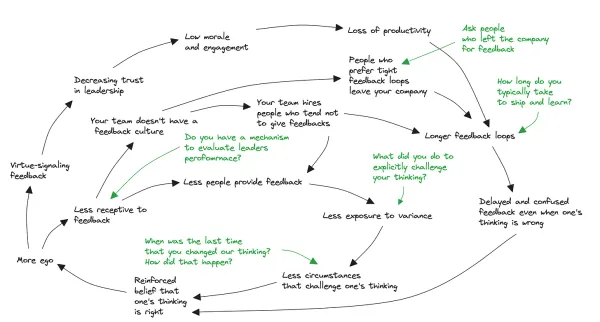 Low morale
and engagement
Loss of productivity
Ask people
who left the company
for feedback
People who
prefer tight
feedback loops
leave your company
Decreasing trust
in leadership
How long do you
typically take
to ship and learn?
Your team hires
people who tend not
to give feedbacks
Your team doesn't have a
feedback culture
Longer feedback loops
Do you have a mechanism
to evaluate leaders
perofomnace?
What did you do to
explicitly challenge
your thinking?
Virtue-signaling
feedback
Less people provide feedback
Less receptive to
feedback
Less exposure to variance
Delayed and confused
feedback even when one's
thinking is wrong
When was the last time
that you changed our thinking?
How did that happen?
More ego
Less circumstances
that challenge one's thinking
Reinforced
belief that
one's thinking
is right